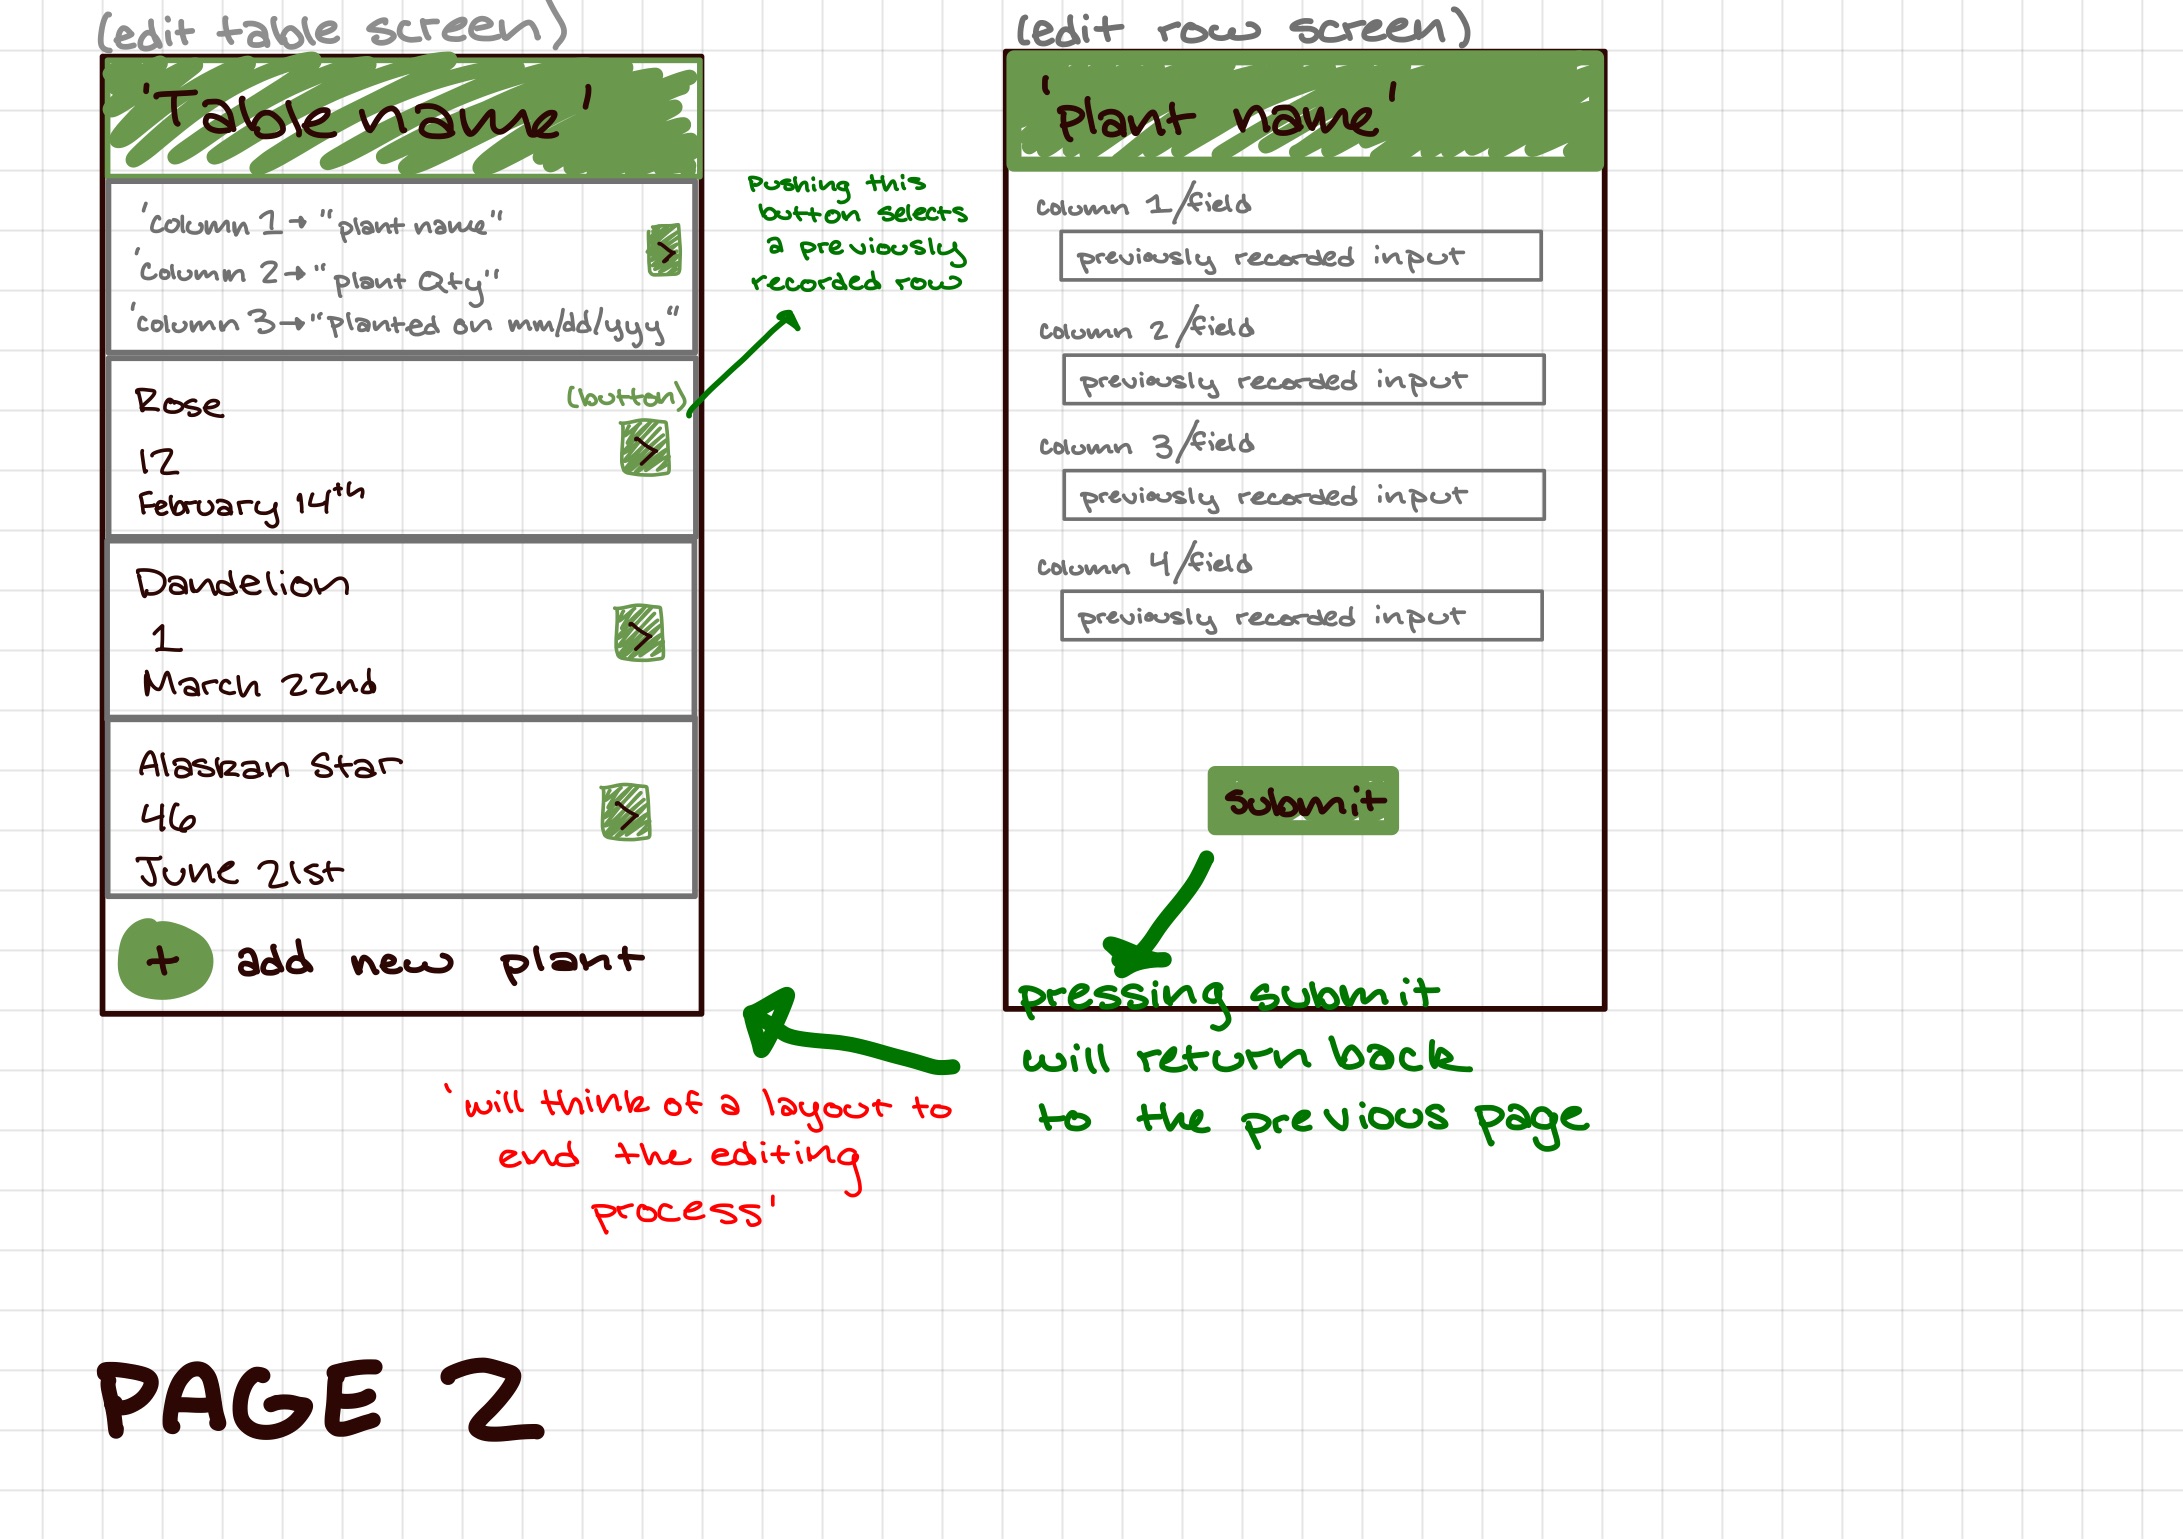 (edit table screen)
'Table name'
'column 1 → "plant name"
'column 2 → "plant Qty"
'column 3 → "planted on mm/dd/yyy"
>
Rose
12
February 14th
(button)
>
Dandelion
1
March 22nd
>
Alaskan Star
46
June 21st
>
+ add new plant
pushing this
button selects
a previously
recorded row
'will think of a layout to
end the editing
process'
(edit row screen)
'plant name'
column 1/field
previously recorded input
column 2/field
previously recorded input
column 3/field
previously recorded input
column 4/field
previously recorded input
submit
pressing submit
will return back
to the previous page
PAGE 2